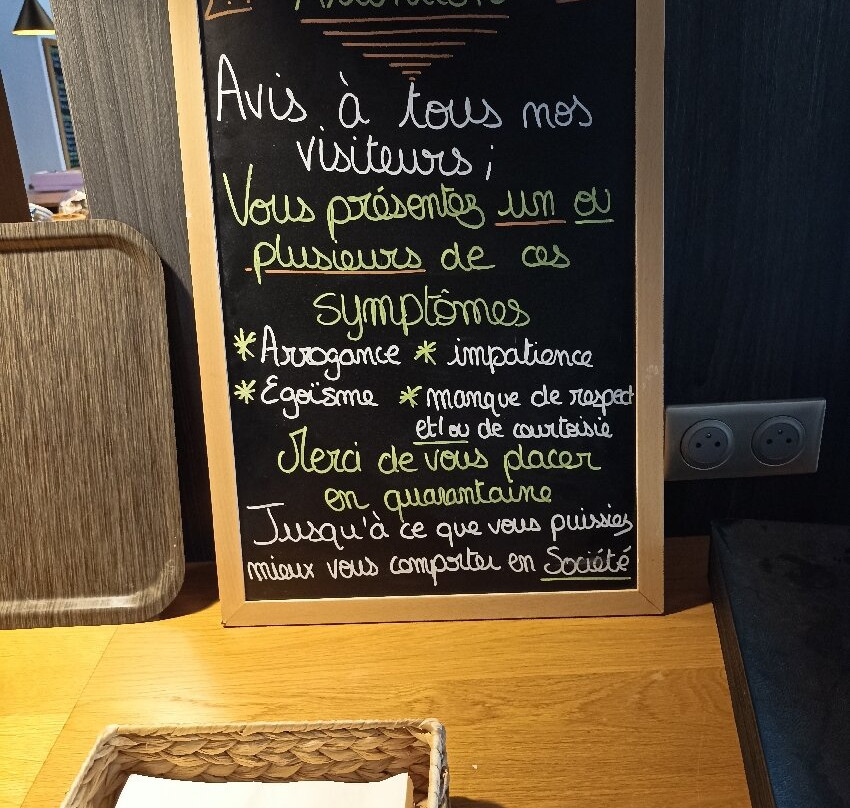 Avis à tous nos
visiteurs ;
Vous présentez un ou
plusieurs de ces
symptômes
* Arrogance * impatience
* Egoïsme * manque de respect
et/ou de courtoisie
Merci de vous placer
en quarantaine
Jusqu'à ce que vous puissiez
mieux vous comporter en Société